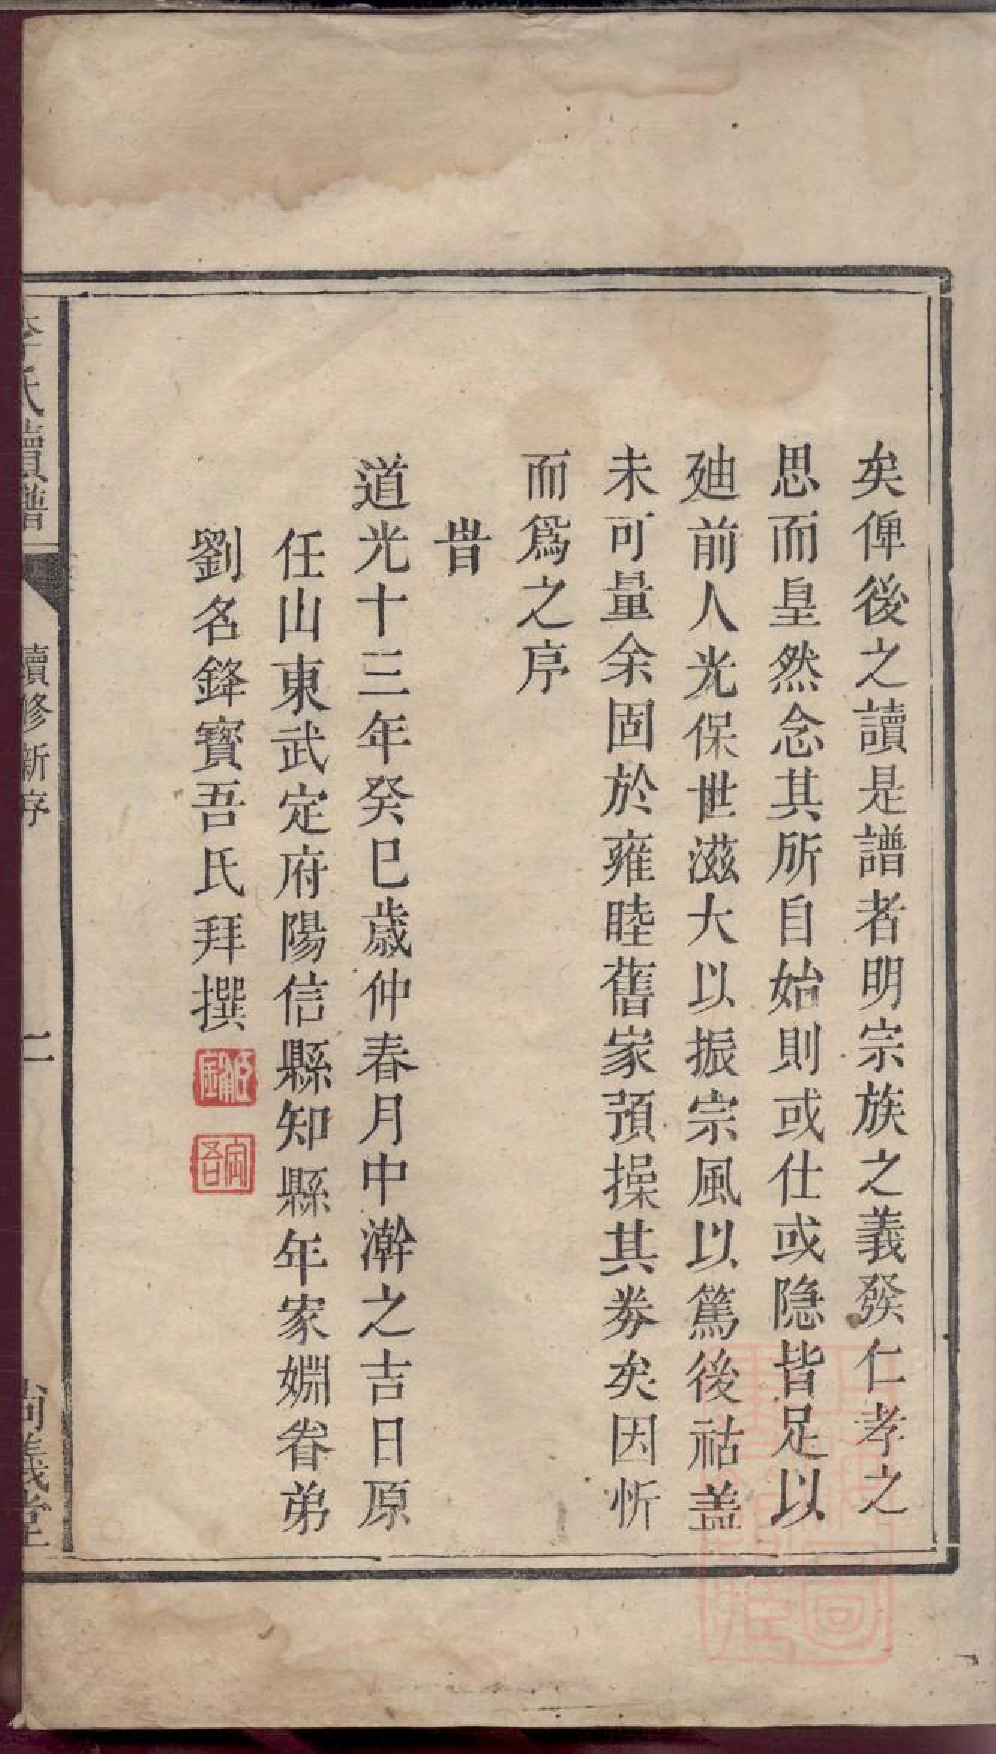 矣俾後之讀是譜者明宗族之義發仁孝之
思而皇然念其所自始則或仕或隐皆足以
廸前人光保世滋大以振宗風以篤後祜盖
未可量余固於雍睦舊家預操其券矣因忻
而爲之序
旹
道光十三年癸巳歲仲春月中澣之吉日原
任山東武定府陽信縣知縣年家婣眷弟
劉名鋒寳吾氏拜撰
李氏續譜
續修新序
二
尚義堂